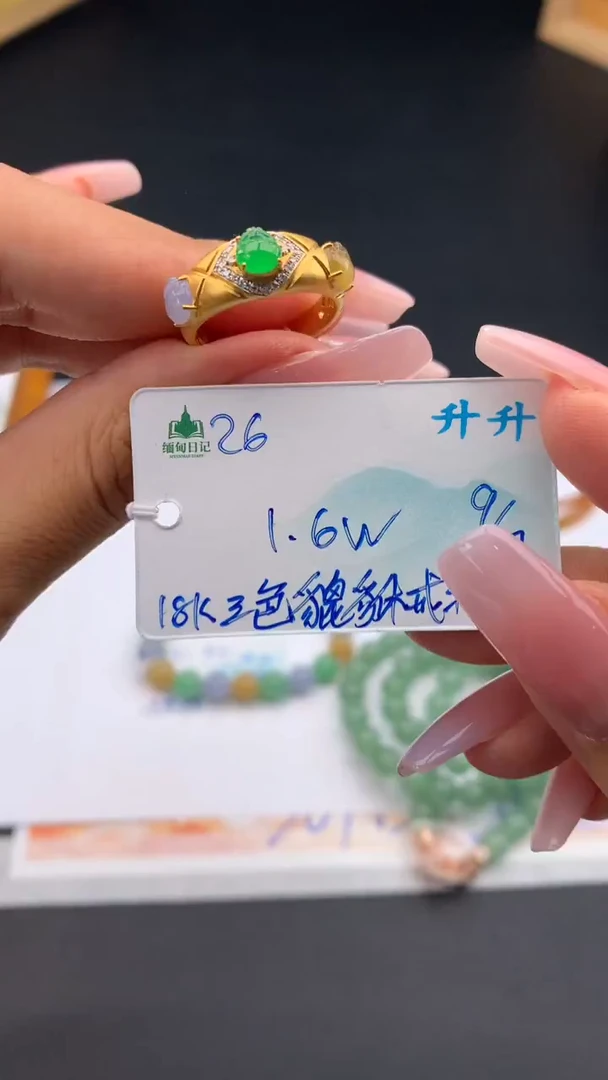 缅甸日记 26 升升
1.6W 9/
18K三色貔貅戒